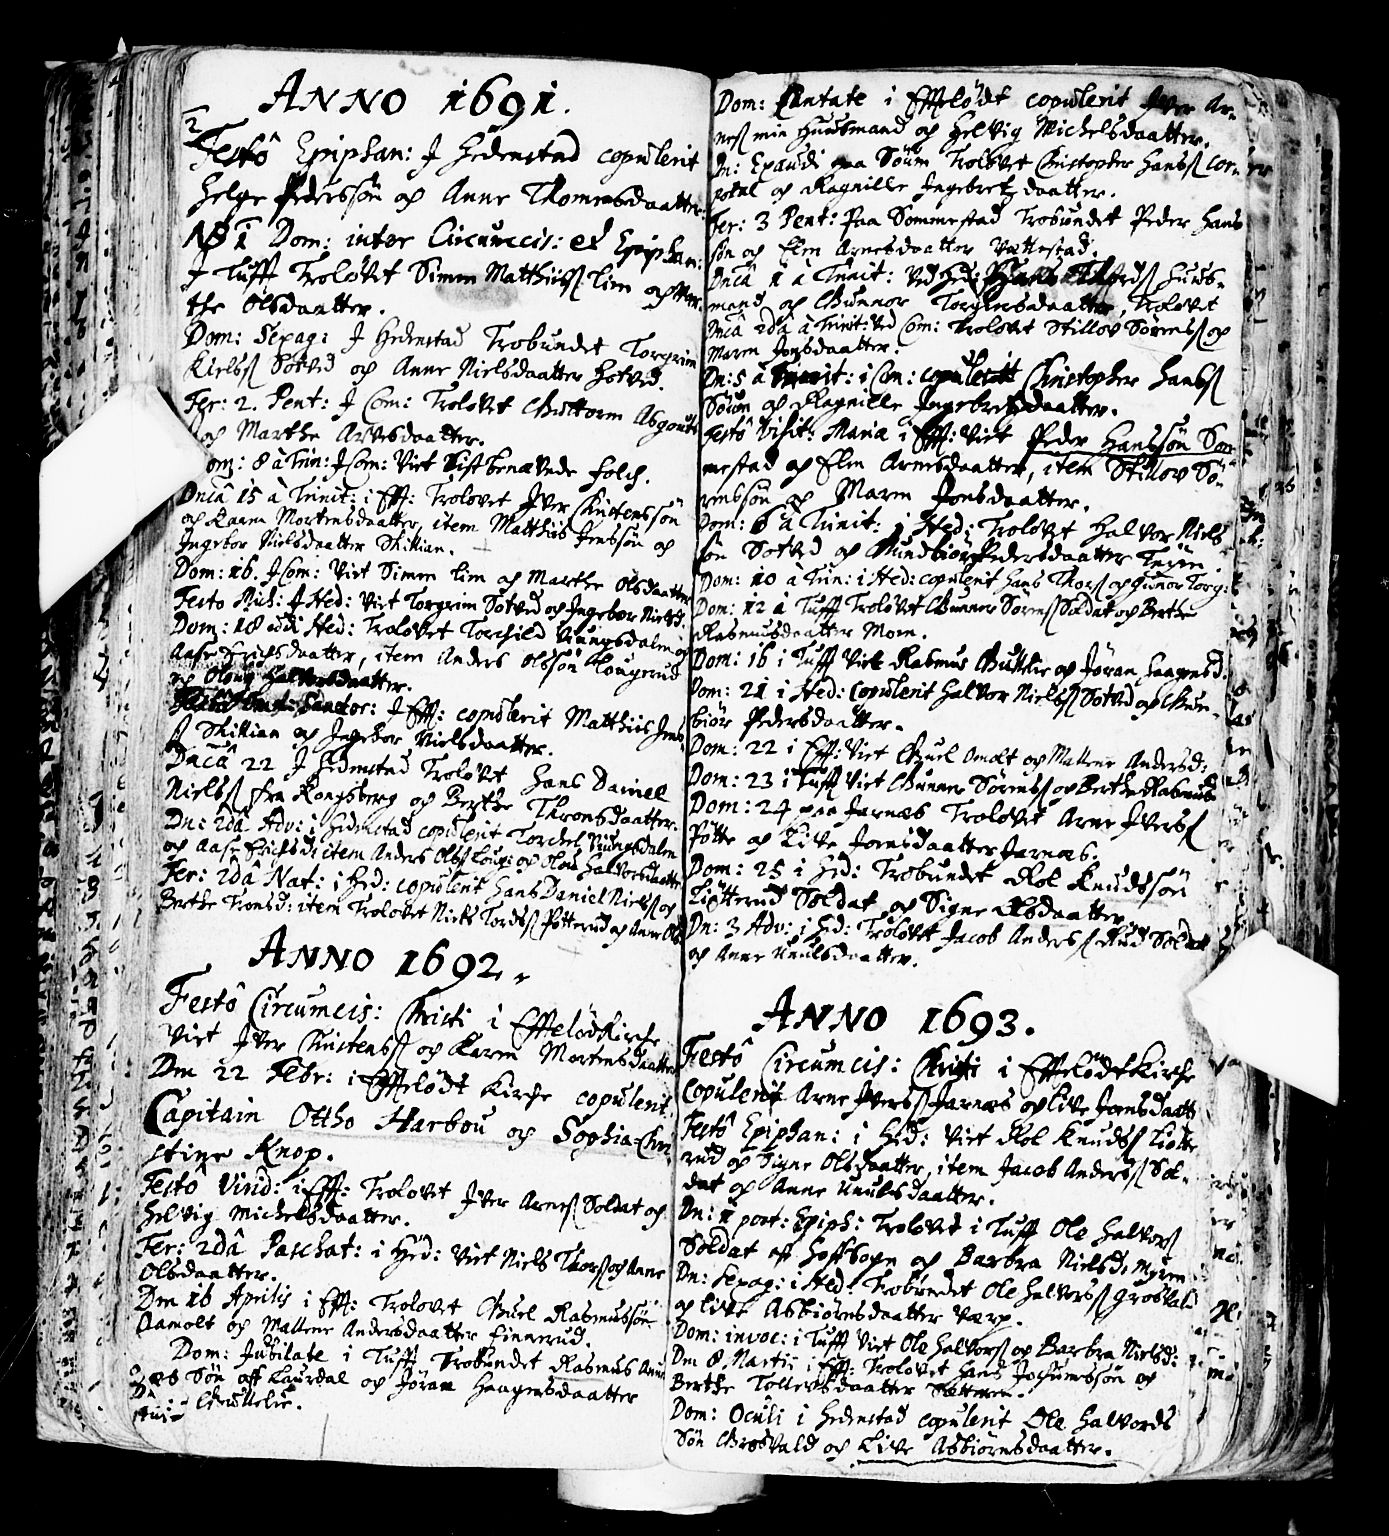 ANNO 1691.
Festô Epiphan: J Hedenstad copulerit
Helge Pederssøn og Anne Thomesdaatter
NB 1 Dom: inter Circumcis: et Epiphan:
J Tufft Trolovet Simen Matthiisſ Lim og Mar-
the Olsdaatter.
Dom: Sepag: J Hedenstad Trobundet Torgrim
Kielsſ Sotved og Anne Nielsdaatter Hotved.
Fer: 2. Pent: J Com: Troloved Guttorm Asgouts
og Marthe Arvesdaatter.
Dom: 8 à Trin: J Com: Viet Sist benævnde folch.
Dncâ 15 à Trinit: i Eff: Trolovet Jver Christenssøn
og Karen Mortensdaatter, item Matthiis Jenssøn og
Ingebor Nielsdaatter Skillian.
Dom: 16. J Com: Viet Simen Lim og Marthe Olsdaatter
Festo Mich: J Hed: Viet Torgrim Sotved og Ingebor Nielsd.
Dom: 18 i Hed: Trolovet Torchild Vungsdalen og
Aase Erichsdaatter, item Anders Olssøn Lougrud
og Oloug Halvorsdaatter.
Festo Omn: Sanctor: J Eff: copulerit Matthiis Jens-
ſ Skillian og Ingebor Nielsdaatter.
Dncâ 22 J Hedenstad Trolovet Hans Daniel
Nielsſ fra Kongsberg og Berthe Thronsdaatter.
Dn: 2dâ Adv: i Hedenstad copulerit Torchel Vungsdalen
og Aase Erichsd: item Anders Olsſ Loug: og Olou Halvorsdaatter
Fer: 2dâ Nat: i Hed: copulerit Hans Daniel Nielsſ og
Berthe Tronsd: item Trolovet Niels Tordsſ Potterud og Anne Ols
ANNO 1692.
Festô Circumcis: Christi i Effteløds Kirche
Viet Jver Christensſ og Karen Mortensdaatter
Den 22 Febr: i Effteløds Kirche copulerit
Capitain Ottho Harbou og Sophia-Chri-
stine Knop.
Festô Virid: i Eff: Trolovet Jver Arnesſ Soldat og
Helvig Michelsdaatter.
Fer: 2dâ Paschat: i Hed: Viet Niels Thorsſ og Anne
Olsdaatter.
Den 16 Aprilis i Eff: Trolovet Gurl Rasmussøn
Aamolt og Mallene Andersdaatter Finnerud.
Dom: Jubilate i Tufft Trobundet Rasmus
Søn off Laurdal og Jøran Haagensdaatter
Dom: Cantate i Effteløds copulerit Jver Ar-
nesſ min Huusmand og Helvig Michelsdaatter.
Dn: Exaudi paa Søum Trolovet Christopher Hansſ Cor-
poral og Ragnille Ingebretzdaatter.
Fer: 3 Pent: Paa Sommestad Trobundet Peder Hans
søn og Elen Arnesdaatter Vattestad.
Dncâ 1 à Trinit: Ved Hed: Huus-
mand og Gunnor Torgersdaatter, Trolovet
Dncâ 2dâ à Trinit: ved Com: Trolovet Stillov Sørensſ og
Maren Jonsdaatter.
Dn: 5 à Trinit: i Com: copulerit Christopher Hansſ
Søum og Ragnille Ingebretzdaatter.
Festô Visit: Maria i Eff: Viet Peder Hanssøn Som-
mestad og Elen Arnesdaatter, item Stillov Sø-
renssøn og Maren Jonsdaatter.
Dom: 6 à Trinit: i Hed: Trolovet Halvor Niels
søn Sotved og Gundbiør Pedersdaatter
Dom: 10 à Trin: i Hed: copulerit Hans Thorsſ og Gunor Torg:
Dom: 12 à Tufft Trolovet Gunner Sørensſ Soldat og Berthe
Rasmusdaatter Moen.
Dom: 16 i Tufft Viet Rasmus og Jøran Haagensd.
Dom: 21 i Hed: Copulerit Halvor Nielsſ Sotved og Gun-
biør Pedersdaatter.
Dom: 22 i Eff: Viet Gurl Omolt og Mallene Andersd:
Dom: 23 i Tufft Viet Gunner Sørensſ og Berthe Rasmus
Dom: 24 paa Jarnæs Trolovet Arne Jversſ
Potte og Live Jonsdaatter Jarnæs.
Dom: 25 i Hed: Trobundet Rol Knudssøn
Liøtterud Soldat og Signe Olsdaatter
Dn: 3 Adv: i Hed: Trolovet Jacob Andersſ Rud Soldat
og Anne Unulsdaatter.
ANNO 1693.
Festô Circumcis: Christi i Effteløds Kirche
Copulerit Arne Jversſ Jarnæs og Live Jonsdaatt
Festô Epiphan: i Hed: Viet Rol Knudsſ Liøtte
rud og Signe Olsdaatter, item Jacob Andersſ Sol-
dat og Anne Unulsdaatter.
Dn: 1 post: Epiph: Trolovet i Tufft Ole Halvorsſ
Soldat aff Hoffsogn og Barbra Nielsd. Myren
Dn: Sepag: i Hed: Trobundet Ole Halvorsſ Grosvald
og Live Asbiørnsdaatter Værp.
Dom: invoc: i Tufft Viet Ole Halvorsſ og Barbra Nielsd:
Den 8 Martii i Eff: Trolovet Hans Jochumssøn og
Berthe Tollevsdaatter Sætteren.
Dom: Oculi i Hedenstad copulerit Ole Halvords
Søn Grosvald og Live Asbiørnsdaatter.